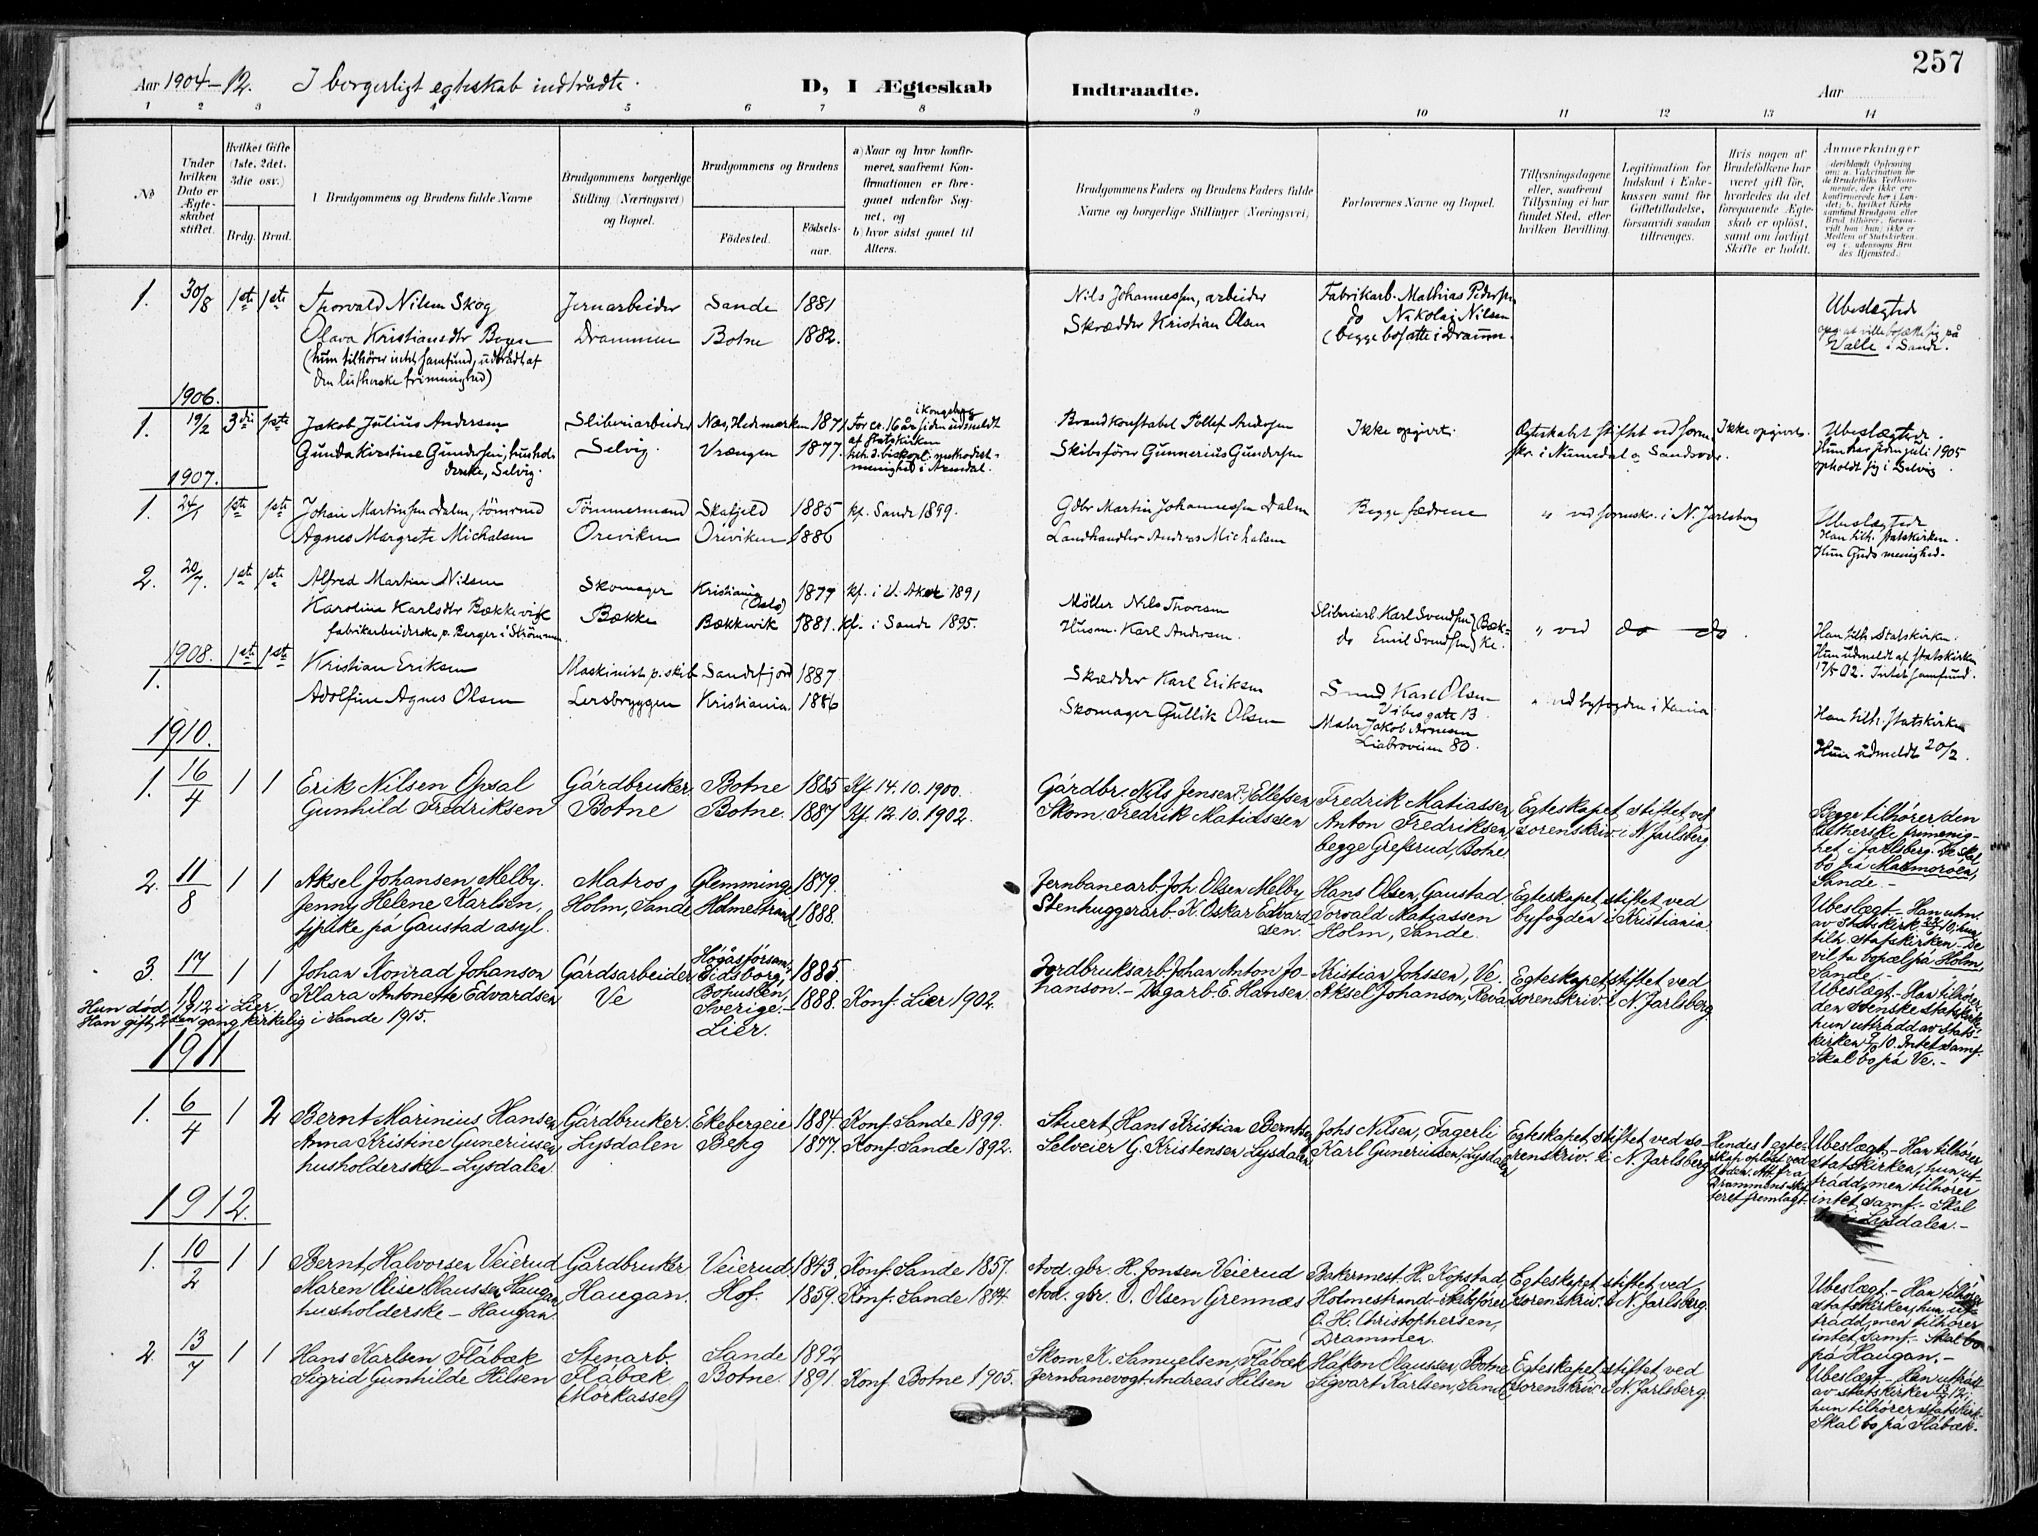 257
Aar 1904-12. I borgerligt egteskab indtrådte.
D, I Ægteskab Indtraadte.
Aar
1 2 3 4 5 6 7 8 9 10 11 12 13 14
No
Under hvilken Dato er Ægteskabet stiftet.
Hvilket Gifte (1ste, 2det, 3die osv.)
Brdg. Brud.
Brudgommens og Brudens fulde Navne
Brudgommens borgerlige Stilling (Næringsvei) og Bopæl.
Brudgommens og Brudens
Fødested. Fødselsaar.
a) Naar og hvor konfirmeret, saafremt Konfirmationen er foregaaet udenfor Sognet, og
b) hvor sidst gaaet til Alters.
Brudgommens Faders og Brudens Faders fulde Navne og borgerlige Stillinger (Næringsvei)
Forlovernes Navne og Bopæl.
Tillysningsdagene eller, saafremt Tillysning ei har fundet Sted, efter hvilken Bevilling.
Legitimation for Indskud i Enkekassen samt for Giftetilladelse, forsaavidt saadan tiltrænges.
Hvis nogen af Brudefolkene har været gift før, hvorledes da det foregaaende Ægteskab er opløst, samt om lovligt Skifte er holdt.
Anmerkninger
1. 30/8 1ste 1ste Thorvald Nilsen Skog Jernarbeider Sande 1881 Nils Johannessen, arbeider Fabrikarb. Mathias Pedersen Ubeslegtede
Olava Kristiansdtr Bogen Drammen Botne 1882. Skrædder Kristian Olsen do Nikolai Nilsen
(hun tilhører intet samfund, udtrådt af (begge bosatte i Dramm. Valle i Sande.
den lutherske frimenighed)
1906.
1. 19/2 3die 1ste Jakob Julius Andersen Sliberiarbeider Næs, Hedemarken 1871 For ca. 16 år siden udmeldt i Kongsberg Brandkonstabel Tollef Andersen Ikke opgivet. Ægteskabet stiftet ved soren- Ikke opgivet. Ubeslegtede.
Gunda Kirstine Gundersen, hushol- Selvig Vrængen 1877. af statskirken Skibsfører Gunnerius Gundersen skr. i Numedal o Sandsvær. Hun har siden juli 1905
derske, Selvig. tilh. d. biskopl. methodist- opholdt sig i Selvig.
menighed i Arendal.
1907.
1. 24/1 1ste 1ste Johan Martinsen Dalen, tömmermd Tömmermand Skafjeld 1885 kf. Sande 1899. Gdbr Martin Johannessen Dalen Begge fædrene " ved sorensk. i N. Jarlsberg Ubeslegtede
Agnes Margrete Michalsen Oreviken Oreviken 1886 Landhandler Andreas Michalsen Han tilh. statskirken.
Hun Guds menighed.
2. 20/7. 1ste 1ste Alfred Martin Nilsen Skomager Kristiania (Oslo) 1877 kf. i V. Aker 1891 Møller Nils Thoresen Sliberiarb Karl Svendsen Bæk-
Karoline Karlsdtr Bækkevik Bække Bækkevik 1881. kf. i Sande 1895. Husm. Karl Andersen. do Emil Svendsen ke. " ved do do Han tilh. Statskirken.
fabrikarbeiderske p. Berger i Strömmen. Hun udmeldt af statskirken
17/5 02. Intet samfund.
1908.
1. 1ste 1ste Kristian Eriksen Maskinist p. skib Sandefjord 1887 Skrædder Karl Eriksen Smed Karl Olsen " ved byfogden i Xania Han tilh. statskirken
Adolfine Agnes Olsen Lersbryggen Kristiania. 1886 Skomager Gullik Olsen Vibesgate 13. Hun udmeldt 20/2.
Maler Jakob Arnesen
Liabroveien 80.
1910.
1. 16/4 1 1 Erik Nilsen Opsal Gårdbruker Botne 1885 Kf. 14.10.1900. Gårdbr. Nils Jensen (?) Ellefsen Fredrik Matiassen, Egteskapet stiftet ved Begge tilhører den
Gunhild Fredriksen Botne Botne. 1887 Kf. 12.10.1902. Skom. Fredrik Matiassen Anton Fredriksen, sorenskriv. i N. Jarlsberg lutherske frimenig-
begge Grefsrud, Botne. het i Jarlsberg. De skal
bo på Malmorøen,
Sande.-
2. 11/8 1 1 Aksel Johansen Melby. Matros Glemminge 1879. Jernbanearb. Joh. Olsen Melby Hans Olsen, Gaustad Egteskapet stiftet ved Ubeslægt.- Han utm.
Jenny Helene Karlsen, Holm, Sande Holmestrand 1888. Stenhuggerarb. K. Oskar Edvard- Torvald Matjassen byfogden i Kristiania av Statskirk. 23/6 10; hun
tjpike på Gaustad asyl. sen. Holm, Sande. tilh. statskirken. De
vil ta bopæl på Holm,
Sande.-
3. 17/10 1 1 Johan Konrad Johanson Gårdsarbeider Högåsförsam. Eidsborg, 1885. Jordbruksarb. Johan Anton Jo- Kristian Johssen, Ve. Egteskapet stiftet ved Ubeslægt.- Han tilhører
Klara Antonette Edvardsen Ve Bohuslen, Sverige.- 1888. Konf. Lier 1902. hanson.- Dagarb. E. Hansen. Aksel Johanson, Reva sorenskriv. i N. Jarlsberg. den svenske statskirke,
Hun død 1912 i Lier. Lier. hun utrådd av stats-
Han gift 2den gang kirkelig i Sande 1915. kirken 7/10. Intet samf.
Skal bo på Ve.-
1911
1. 6/4 1 2 Bernt Marinius Hansen Gårdbruker. Ekebergeie 1884. Konf. Sande 1899. Stuert Hans Kristian Berntsen Johs Nilsen, Fagerli Egteskapet stiftet ved so- Hendes 1 egte- Ubeslægt.- Han tilhører
Anna Kristine Guneriusen, Lysdalen Berg 1877. Konf. Sande 1892. Selveier G. Kristensen Lysdalen. Karl Guneriussen, Lysdalen renskriv. i N. Jarlsberg skap opløst ved statskirken, hun ut-
husholderske - Lysdalen døden. Att. fra trådd, men tilhører
Drammens skif- intet samf.- Skal
teret fremlagt.- bo i Lysdalen.-
1912.
1. 10/2 1 1 Bernt Halvorsen Veierud Gårdbruker Veierud. 1843. Konf. Sande 1857. Avd. gbr. H. Jonsen Veierud Bakermest. H. Kopstad, Egteskapet stiftet ved Ubeslægt.- Han tilhører
Maren Elise Olaussen Haugan, Haugan. Hof. 1859. Konf. Sande 1874. Avd. gbr. O. Olsen Grennæs Holmestrand.- Skibsfører sorenskriv. i N. Jarlsberg. statskirken, hun ut-
husholderske - Haugan. O. H. Christophersen, trådd, men tilhører
Drammen. intet samf.- Skal bo
på Haugan.-
2. 13/7 1 1 Hans Karlsen Flåbæk Stenarb. Sande 1892 Skom. K. Samuelsen, Flåbæk Håkon Olaussen, Botne Egteskapet stiftet ved Ubeslægt.- Han utrådt
Sigrid Gunhilde Hilsen Flåbæk Botne. 1891. Konf. Botne 1905. Jernbanevogt Andreas Hilsen Sigvart Karlsen, Sande sorenskriv. i N. Jarlsberg. av statskirken 12;
(Mørkassel) hun tilhører statskirk.
Skal bo på Flåbæk.